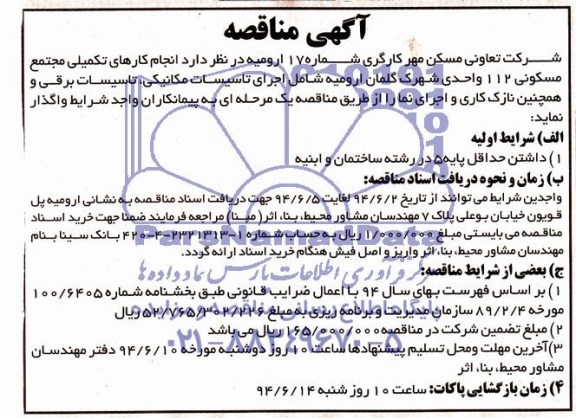 آگهی مناقصه
شرکت تعاونی مسکن مهر کارگری شماره ۱۷ ارومیه در نظر دارد انجام کارهای تکمیلی مجتمع
مسکونی ۱۱۲ واحدی شهرک گلمان ارومیه شامل اجرای تاسیسات مکانیکی، تاسیسات برقی و
همچنین نازک کاری و اجرای نما را از طریق مناقصه یک مرحله ای به پیمانکاران واجد شرایط واگذار
نماید:
الف) شرایط اولیه
۱) داشتن حداقل پایه۵ در رشته ساختمان و ابنیه
ب) زمان و نحوه دریافت اسناد مناقصه:
واجدین شرایط می توانند از تاریخ ۹۴/۶/۲ لغایت ۹۴/۶/۵ جهت دریافت اسناد مناقصه به نشانی ارومیه پل
قویون خیابان بوعلی پلاک ۷ مهندسان مشاور محیط، بنا، اثر (مبنا) مراجعه فرمایند ضمنا جهت خرید اسناد
مناقصه می بایستی مبلغ ۱/۰۰۰/۰۰۰ ریال به حساب شماره ۱-۲۲۲۱۳۱۳-۴-۴۲۰ بانک سینا بنام
مهندسان مشاور محیط، بنا، اثر واریز و اصل فیش هنگام خرید اسناد ارائه گردد.
ج) بعضی از شرایط مناقصه:
۱) بر اساس فهرست بهای سال ۹۴ با اعمال ضرایب قانونی طبق بخشنامه شماره ۱۰۰/۶۴۰۵
مورخه ۸۹/۲/۴ سازمان مدیریت و برنامه ریزی به مبلغ ۵۲/۷۶۵/۳۰۲/۲۲۶ ریال
۲) مبلغ تضمین شرکت در مناقصه ۱۶۵/۰۰۰/۰۰۰ ریال می باشد
۳) آخرین مهلت ومحل تسلیم پیشنهادها ساعت ۱۰ روز دوشنبه مورخه ۹۴/۶/۱۰ دفتر مهندسان
مشاور محیط، بنا، اثر
۴) زمان بازگشایی پاکات: ساعت ۱۰ روز شنبه ۹۴/۶/۱۴
ParsNamadData
گردآوری اطلاعات پارس نماد داده ها
پایگاه اطلاع رسانی مناقصه و مزایده
۰۲۱-۸۸۳۴۹۶۷۰-۵